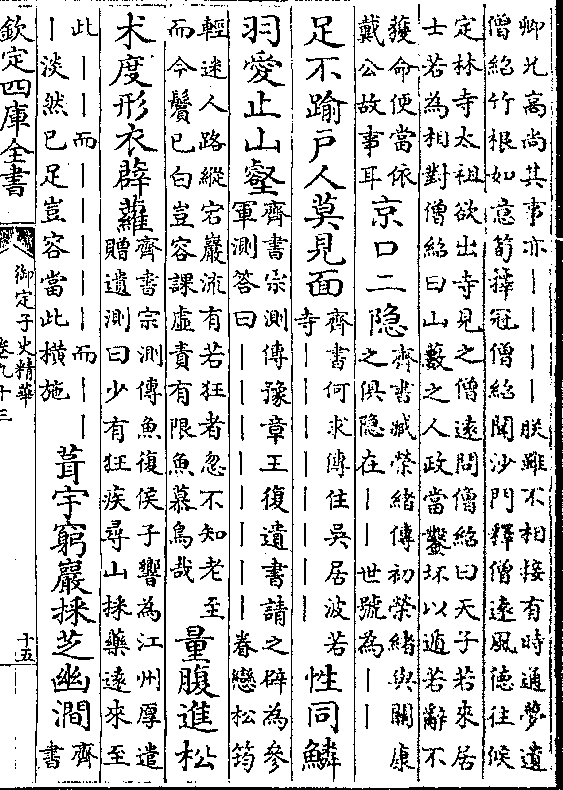 卿兄高尚其事亦｜｜｜｜朕雖不相接有時通夢遺
僧紹竹根如意筍籜冠僧紹聞沙門釋僧遠風德往候
定林寺太祖欲出寺見之僧遠問僧紹曰天子若來居
士若為相對僧紹曰山藪之人政當鑿坏以遁若辭不
獲命便當依
戴公故事耳
京口二隐
齊書臧榮緒傳初榮緒與關康
之俱隐在｜｜世號為｜｜
足不踰戶人莫見面
齊書何求傳住吳居波若
寺｜｜｜｜｜｜｜｜
性同鱗
羽愛止山壑
齊書宗測傳豫章王復遺書請之辟為參
軍測答曰｜｜｜｜｜｜｜｜眷戀松筠
輕迷人路縱宕巖流有若狂者忽不知老至
而今鬢已白豈容課虛責有限魚慕鳥哉
量腹進松
术度形衣薜蘿
齊書宗測傳魚復侯子響為江州厚遣
贈遺測曰少有狂疾尋山採藥遠來至
此｜｜而｜｜｜｜而｜｜
｜淡然已足豈容當此橫施
葺宇窮巖採芝幽澗
齊
書
欽定四庫全書
御定子史精華
卷九十三
十五